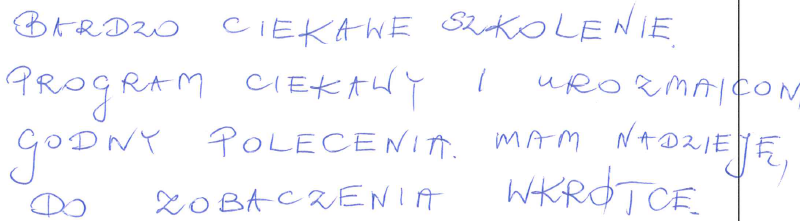 BARDZO CIEKAWE SZKOLENIE.
PROGRAM CIEKAWY I UROZMAICON
GODNY POLECENIA. MAM NADZIEJĘ,
DO ZOBACZENIA WKRÓTCE.